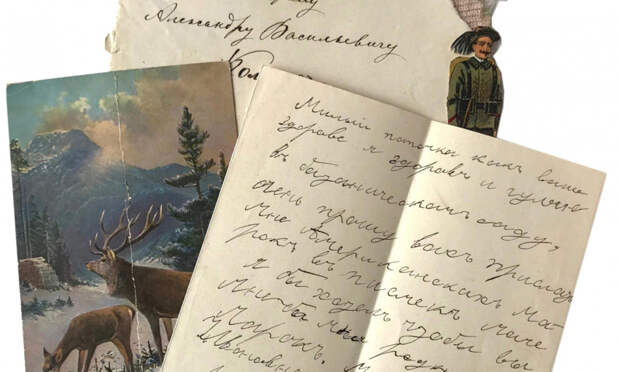 Александру Васильевичу
Кол
Милый папочка какъ ваше
здорове я здоровъ и гуляю
въ батаническомъ саду,
очень прошу васъ прислать
мне Американскихъ ма-
рокъ въ маме
я бы хотелъ чтобы вы
марокъ.
Ивановн